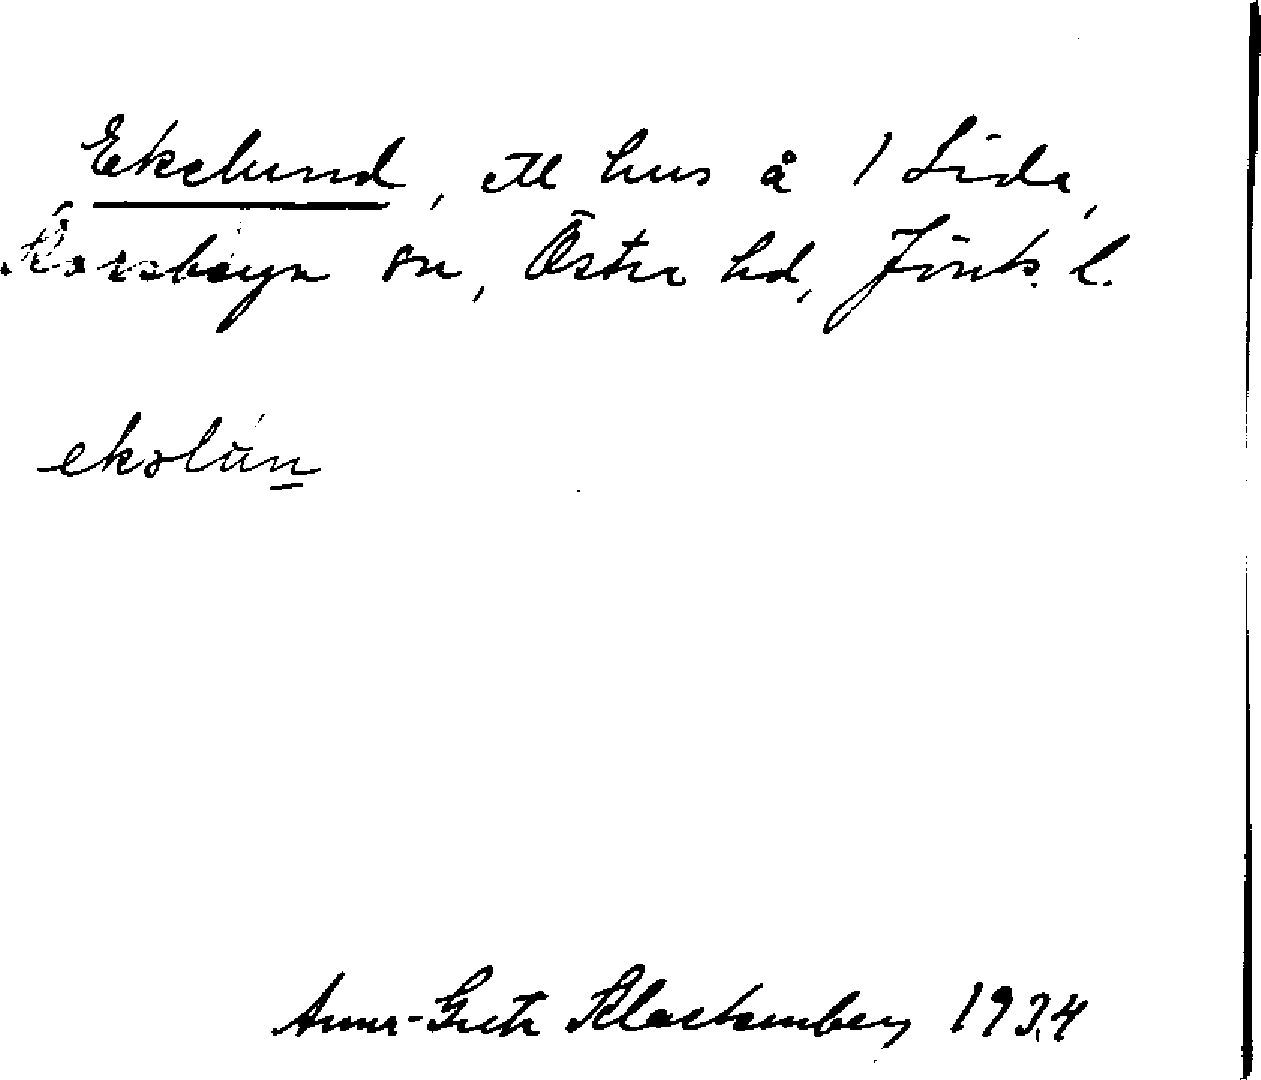 Ekelund, ett hus å 1 Lida,
Korsberga sn, Östra hd, Jönk. l.
ekəlùn
Anna-Greta Klackenberg 1934